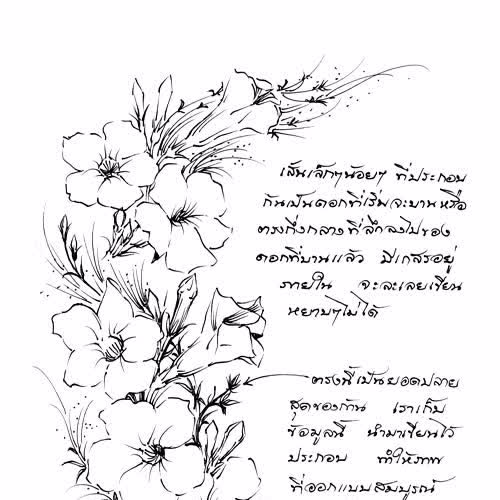 เส้นเล็กๆน้อยๆ ที่ประกอบ
กันเป็นดอกที่เริ่มจะบานหรือ
ตรงกึ่งกลางที่ลึกลงไปของ
ดอกที่บานแล้ว มีเกสรอยู่
ภายใน จะละเลยเขียน
หยาบๆไม่ได้
ตรงนี้เป็นยอดปลาย
สุดของก้าน เราเก็บ
ข้อมูลนี้ นำมาเขียนไว้
ประกอบ ทำให้ภาพ
ที่ออกแบบสมบูรณ์